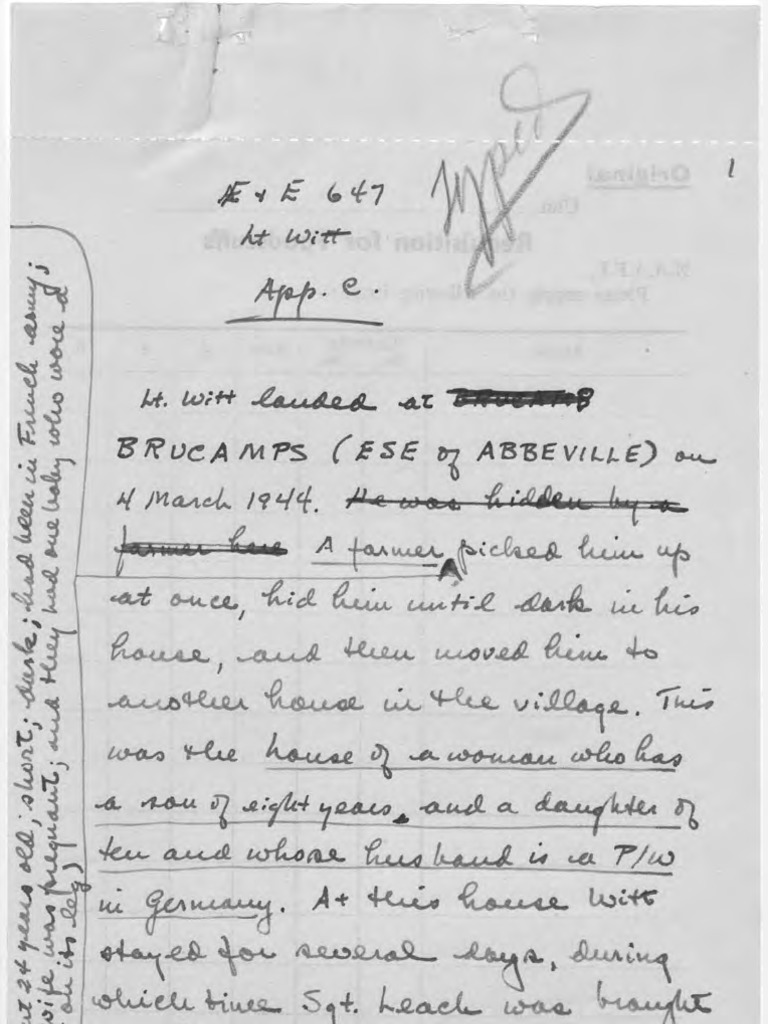 1
Typed
E + E 647
Lt Witt
App. C.
Lt. Witt landed at BRUCAMPS
BRUCAMPS (ESE of ABBEVILLE) on
4 March 1944. He was hidden by a
farmer here A farmer picked him up
at once, hid him until dark in his
house, and then moved him to
another house in the village. This
was the house of a woman who has
a son of eight years, and a daughter of
ten and whose husband is a P/W
in Germany. At this house Witt
stayed for several days, during
which time Sgt. Leach was brought
24 years old; short; dark; had been in French army;
wife was pregnant; and they had one baby who wore a
on its leg)
Original
Requisition for
N.A.A.F.I.
Please supply the following